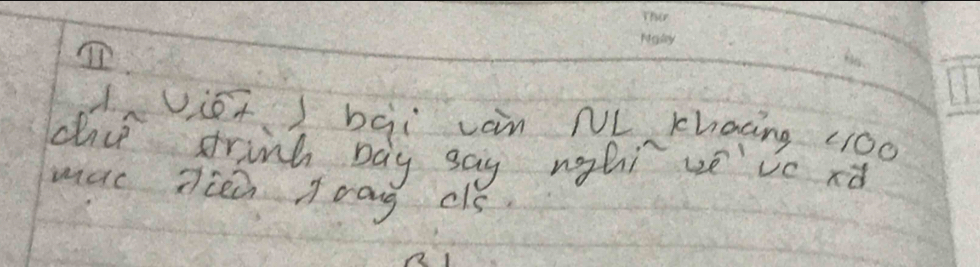 Thứ
Ngày
No.
II.
1. Viết 1 bài văn NL khoảng 400
chữ trình bày say nghĩ về vc xđ
mục tiêu trong c/s.